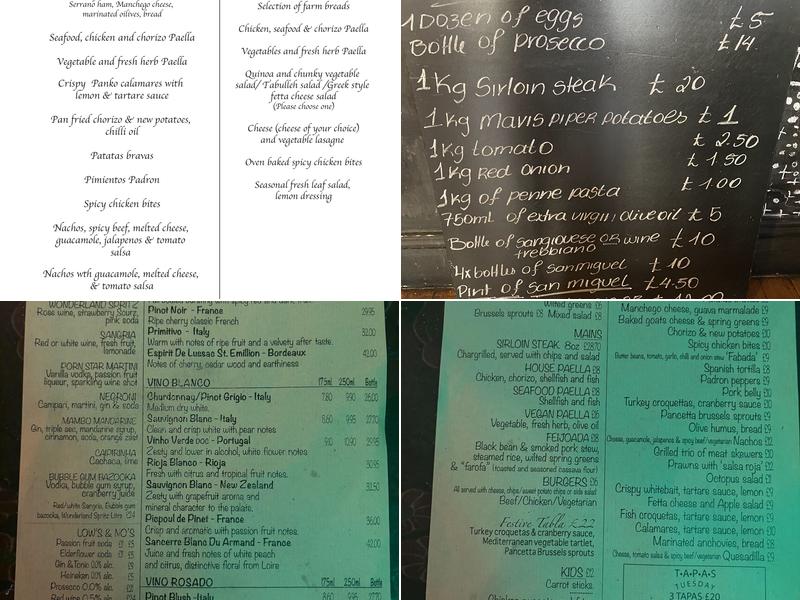 Serrano ham, Manchego cheese,
marinated oilives, bread
Seafood, chicken and chorizo Paella
Vegetable and fresh herb Paella
Crispy Panko calamares with
lemon & tartare sauce
Pan fried chorizo & new potatoes,
chilli oil
Patatas bravas
Pimientos Padron
Spicy chicken bites
Nachos, spicy beef, melted cheese,
guacamole, jalapenos & tomato
salsa
Nachos wth guacamole, melted cheese,
& tomato salsa
Selection of farm breads
Chicken, seafood & chorizo Paella
Vegetables and fresh herb Paella
Quinoa and chunky vegetable
salad/ Tabulleh salad /Greek style
fetta cheese salad
(Please choose one)
Cheese (cheese of your choice)
and vegetable lasagne
Oven baked spicy chicken bites
Seasonal fresh leaf salad,
lemon dressing
1 Dozen of eggs £5
Bottle of prosecco £14
1Kg Sirloin steak £20
1Kg Maris piper potatoes £1
1Kg tomato £2.50
1Kg Red onion £1.50
1Kg of penne pasta £1.00
750ml of extra virgin olive oil £5
Bottle of sangiovese OR wine £10
trebbiano
4x bottles of san miguel £10
Pint of san miguel £4.50
WONDERLAND SPRITZ
Rose wine, strawberry Sourz,
pink soda
SANGRIA
Red or white wine, fresh fruit,
lemonade
PORN STAR MARTINI
Vanilla vodka, passion fruit
liqueur, sparkling wine shot
NEGRONI
Campari, martini, gin & soda
MAMBO MANDARINE
Gin, triple sec, mandarine syrup,
cinnamon, soda, orange zest
CAIPIRINHA
Cachaca, lime
BUBBLE GUM BAZOOKA
Vodka, bubble gum syrup,
cranberry juice
Red/white Sangria, Bubble gum
bazooka, Wonderland Spritz Litre £24
LOW'S & NO'S
Passion fruit soda £3 £5
Elderflower soda £3 £5
Gin & Tonic 0.0% alc. £9
Heineken 0.0% alc. £5
Prosecco 0.0% alc.
Red wine 0.5% alc.
Pinot Noir - France 29.95
Ripe cherry classic French
Primitivo - Italy 32.00
Warm with notes of ripe fruit and a velvety after taste.
Esprit De Lussac St. Emillion - Bordeaux 42.00
Notes of cherry, cedar wood and earthiness
VINO BLANCO 175ml 250ml Bottle
Chardonnay/Pinot Grigio - Italy 7.80 9.90 26.00
Medium dry white.
Sauvignon Blanc - Italy 8.60 9.95 27.70
Clean and crisp white with pear notes
Vinho Verde DOC - Portugal 9.10 10.90 29.95
Zesty and lower in alcohol, white flower notes
Rioja Blanco - Rioja 30.95
Fresh with citrus and tropical fruit notes.
Sauvignon Blanc - New Zealand 31.50
Zesty with grapefruit aroma and
mineral character to the palate.
Picpoul de Pinet - France 36.00
Crisp and aromatic with passion fruit notes.
Sancerre Blanc Du Armand - France 42.00
Juice and fresh notes of white peach
and citrus, distinctive floral from Loire
VINO ROSADO 175ml 250ml Bottle
Pinot Blush - Italy 8.60 9.95 27.70
Wilted greens £6
Brussels sprouts £6 Mixed salad £6
MAINS
SIRLOIN STEAK 8oz £28.70
Chargrilled, served with chips and salad
HOUSE PAELLA £18
Chicken, chorizo, shellfish and fish
SEAFOOD PAELLA £18
Shellfish and fish
VEGAN PAELLA £16
Vegetable, fresh herb, olive oil
FEIJOADA
Black bean & smoked pork stew,
steamed rice, wilted spring greens
& "farofa" (toasted and seasoned cassava flour)
BURGERS £16
All served with cheese, chips/sweet potato chips or side salad
Beef/Chicken/Vegetarian
Festive Tabla £22
Turkey croquettes & cranberry sauce,
Mediterranean vegetable tartlet,
Pancetta Brussels sprouts
KIDS £2
Carrot sticks
Manchego cheese, guava marmalade £9
Baked goats cheese & spring greens £9
Chorizo & new potatoes £10
Spicy chicken bites £10
Butter beans, tomato, garlic, chilli and onion stew 'Fabada' £9
Spanish tortilla £8
Padron peppers £9
Pork belly £10
Turkey croquettes, cranberry sauce £10
Pancetta brussels sprouts £9
Olive humus, bread £9
Cheese, guacamole, jalapenos & spicy beef/vegetarian Nachos £12
Grilled trio of meat skewers £10
Prawns with 'salsa roja' £12
Octopus salad £11
Crispy whitebait, tartare sauce, lemon £9
Fetta cheese and Apple salad £9
Fish croquetas, tartare sauce, lemon £9
Calamares, tartare sauce, lemon £10
Marinated anchovies, bread £8
Cheese, tomato salsa & spicy beef/vegetarian Quesadilla £9
T•A•P•A•S
TUESDAY
3 TAPAS £20